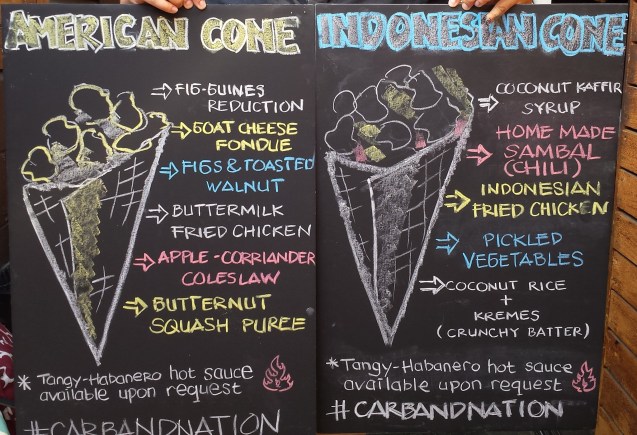 AMERICAN CONE
FIG-GUINES
REDUCTION
GOAT CHEESE
FONDUE
FIGS & TOASTED
WALNUT
BUTTERMILK
FRIED CHICKEN
APPLE-CORRIANDER
COLESLAW
BUTTERNUT
SQUASH PUREE
* Tangy-Habanero hot sauce
available upon request
#CARBANDNATION
INDONESIAN CONE
COCONUT KAFFIR
SYRUP
HOME MADE
SAMBAL
(CHILI)
INDONESIAN
FRIED CHICKEN
PICKLED
VEGETABLES
COCONUT RICE
+
KREMES
(CRUNCHY BATTER)
* Tangy-Habanero hot sauce
available upon request
#CARBANDNATION